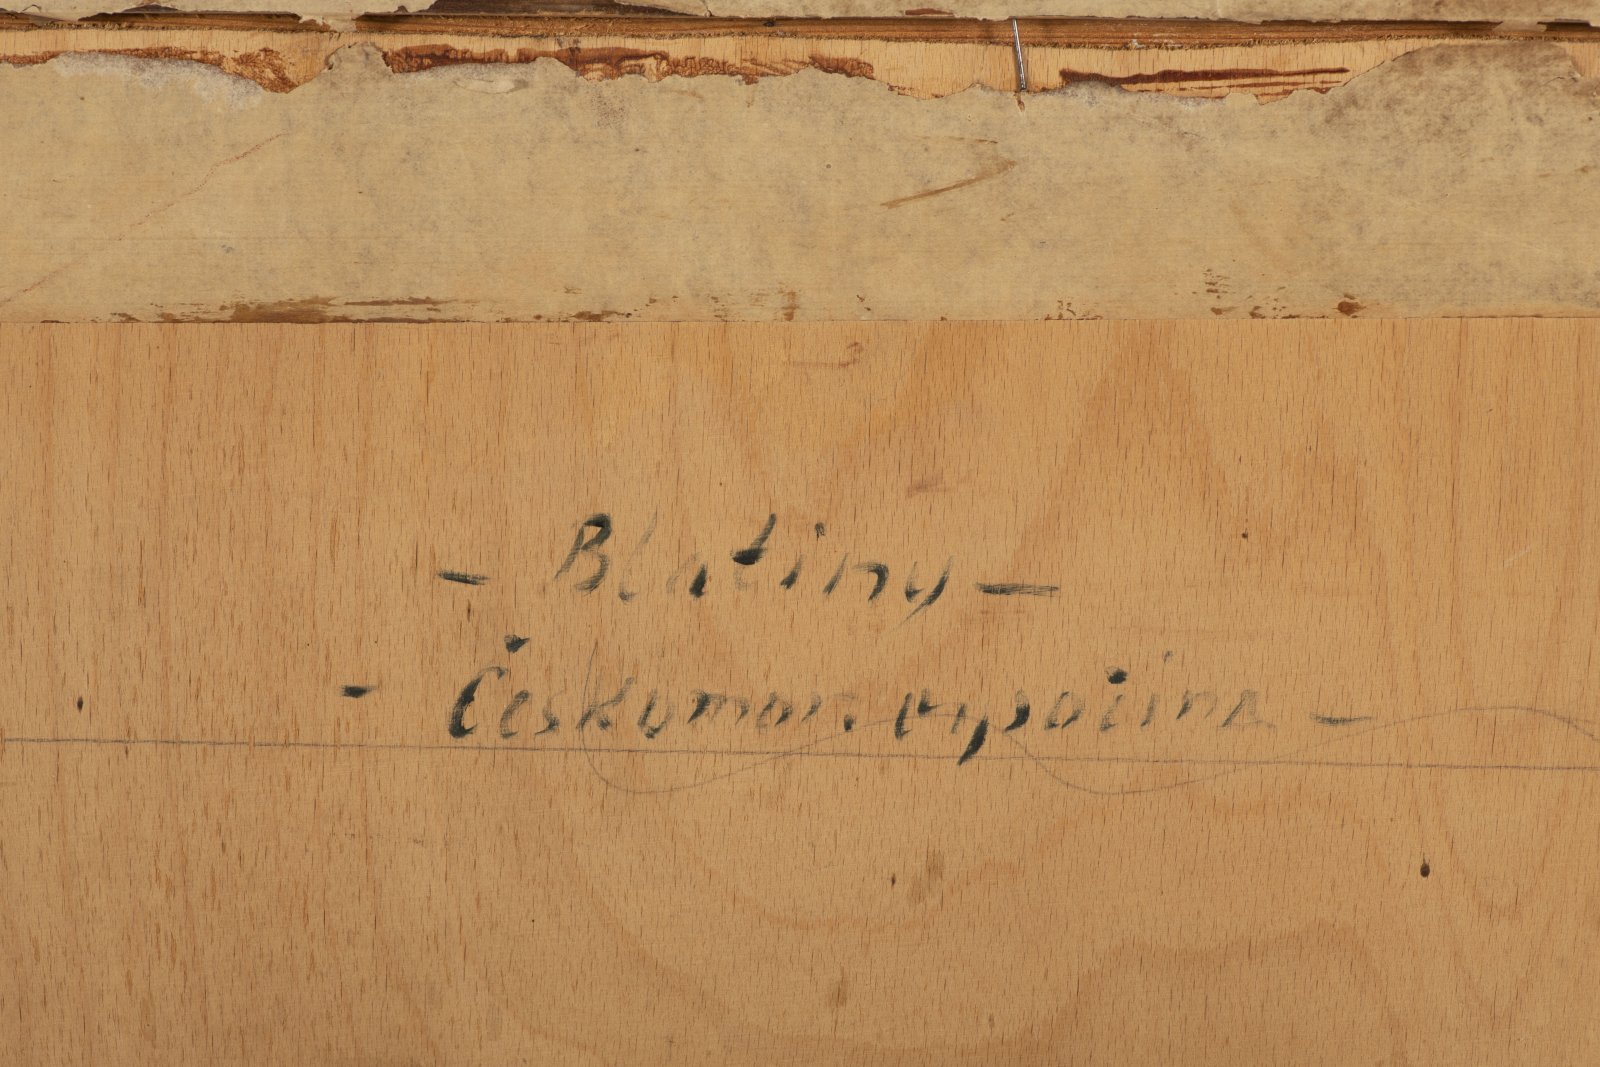 - Blatiny -
- Českomor. vysočina -